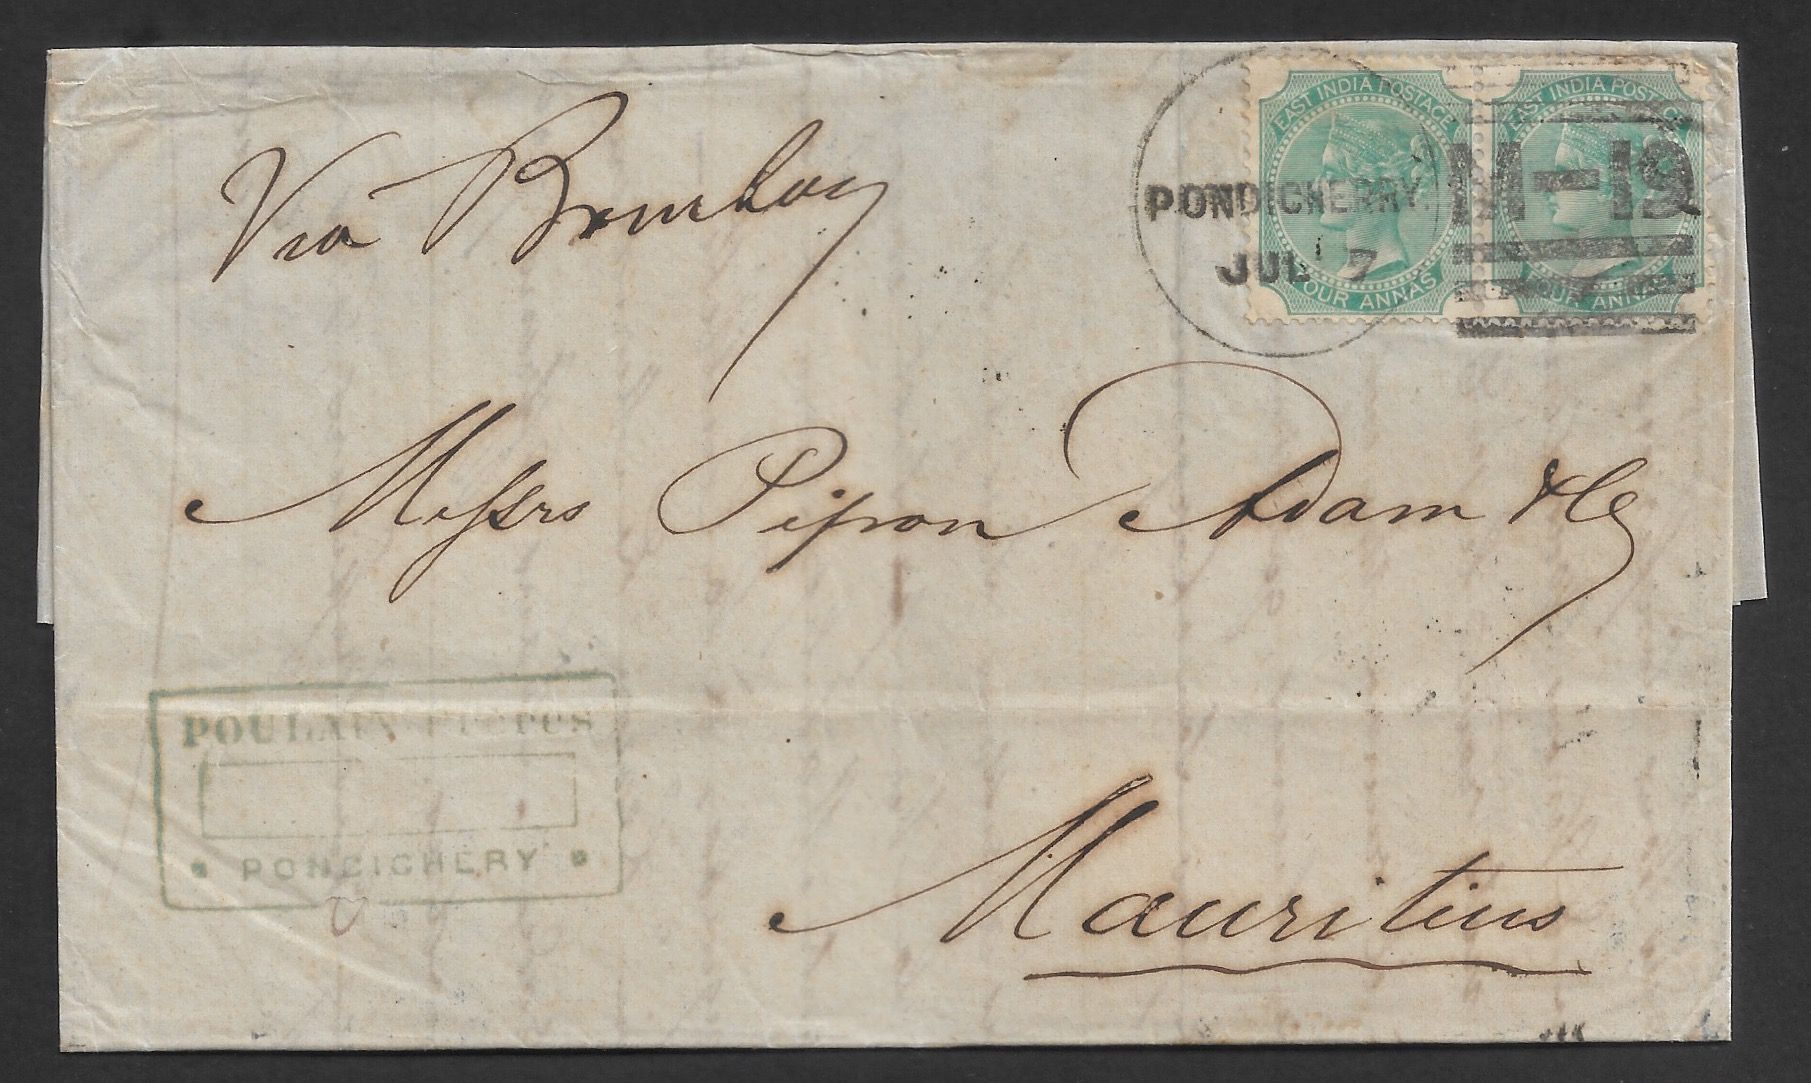 Via Bombay
EAST INDIA POSTAGE
FOUR ANNAS
EAST INDIA POSTAGE
FOUR ANNAS
PONDICHERRY.
JUL 7
M-19
Messrs Pipon Adam & Co
POULAIN
PONDICHERY
Mauritius